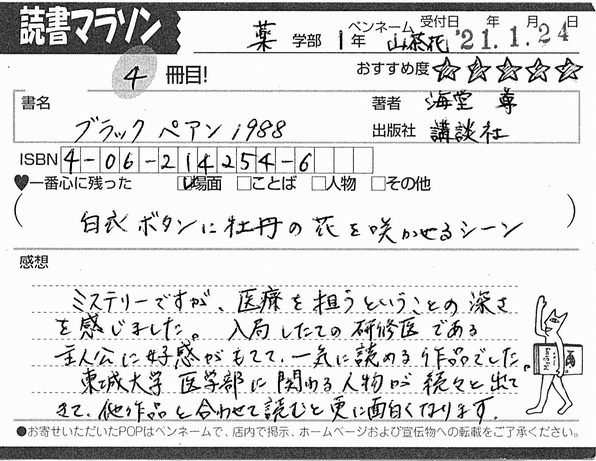 読書マラソン
薬 学部 1年 ペンネーム 山茶花 受付日 '21年 1月 24日
4 冊目! おすすめ度 ☆☆☆☆☆
書名 ブラックペアン1988
著者 海堂 尊
出版社 講談社
ISBN 4-06-214254-6
♥一番心に残った ☑場面 □ことば □人物 □その他
(白衣ボタンに牡丹の花を咲かせるシーン)
感想
ミステリーですが、医療を担うということの深さ
を感じました。入局したての研修医である
主人公に好感がもてて、一気に読める作品でした。
東城大学医学部に関わる人物が続々と出て
きて、他作品と合わせて読むと更に面白くなります。
●お寄せいただいたPOPはペンネームで、店内で掲示、ホームページおよび宣伝物への転載をご了承ください。